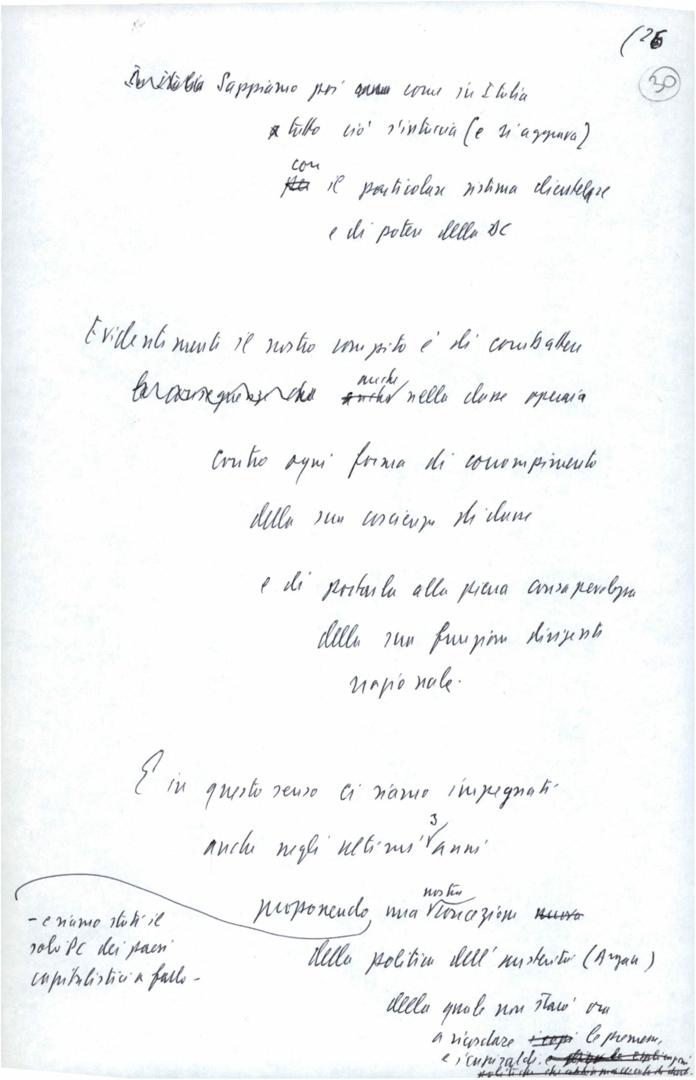 (26
30
In Italia Sappiamo poi come in Italia
tutto ciò s'intreccia (e si aggrava)
con
per il particolare sistema clientelare
e di potere della DC
Evidentemente il nostro compito è di combattere
anche
anche nella classe operaia
contro ogni forma di corrompimento
della sua coscienza di classe
e di portarla alla piena consapevolezza
della sua funzione dirigente
nazionale.
E in questo senso ci siamo impegnati
3
anche negli ultimi anni
nostra
proponendo, una concezione nuova
- e siamo stati il
solo PC dei paesi
capitalistici a farlo -
della politica dell'austerità (Argan)
della quale non starò ora
a ricordare i capi le premesse,
e i capisaldi. e